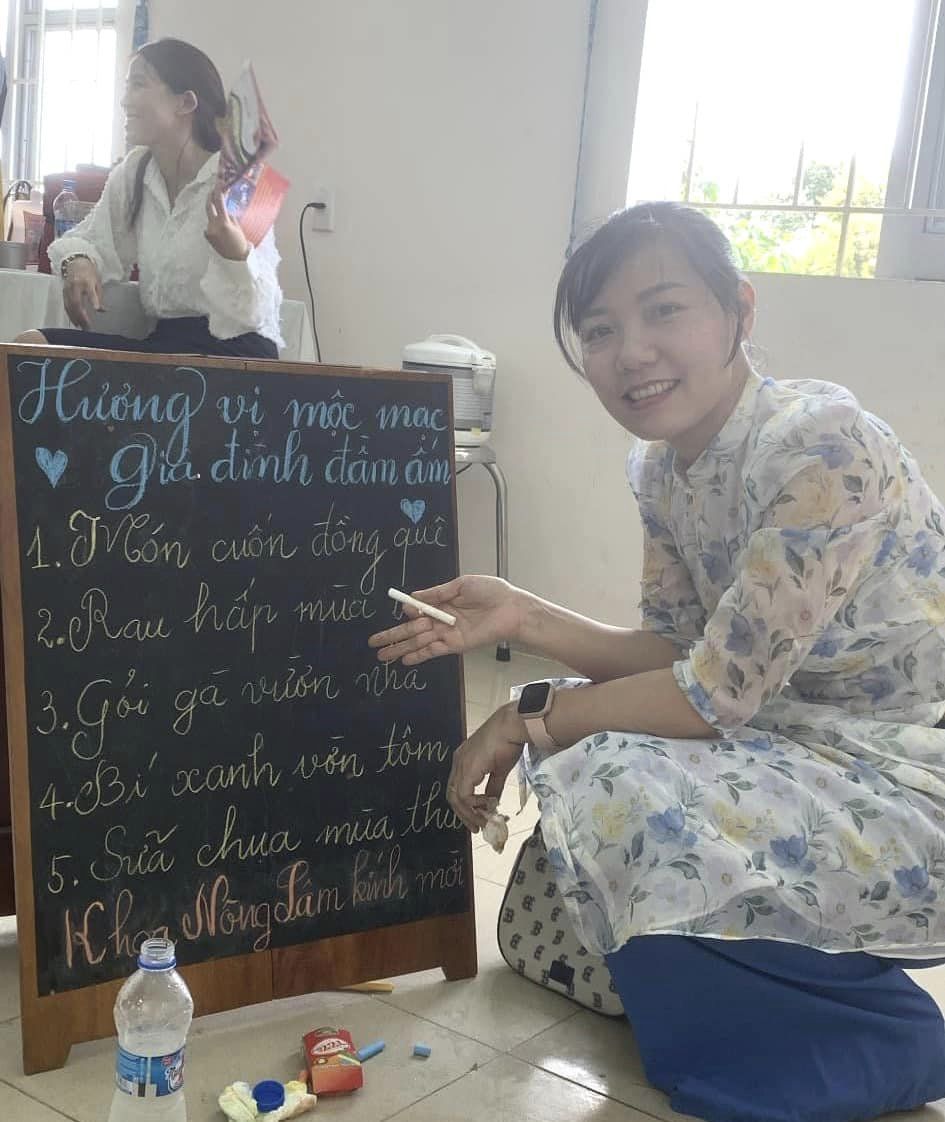 Hương vị mộc mạc
gia đình đầm ấm
1. Món cuốn đồng quê
2. Rau hấp mùa
3. Gỏi gà vườn nhà
4. Bí xanh vờn tôm
5. Sữa chua mùa thu
Khoa Nông Lâm kính mời